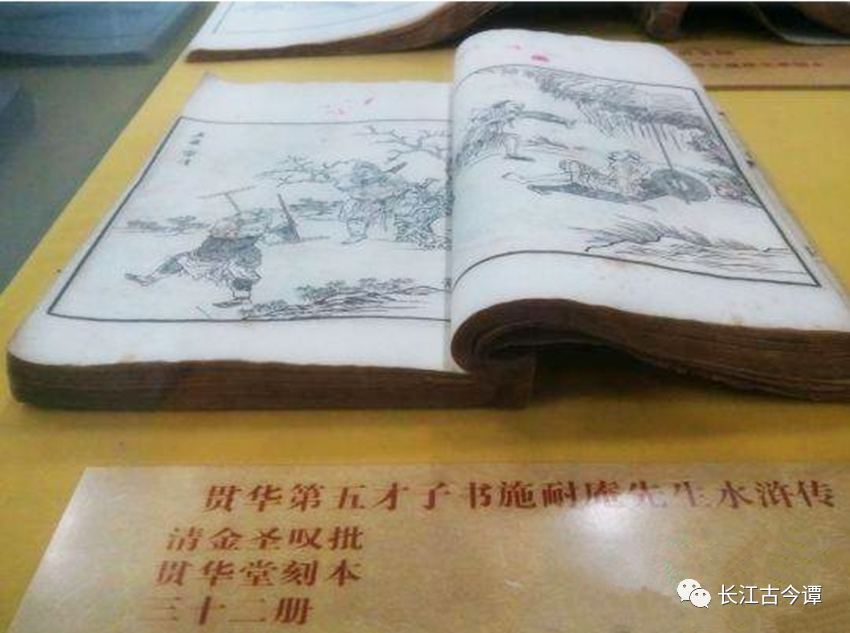 贯华第五才子书施耐庵先生水浒传
清金圣叹批
贯华堂刻本
三十二册
长江古今谭